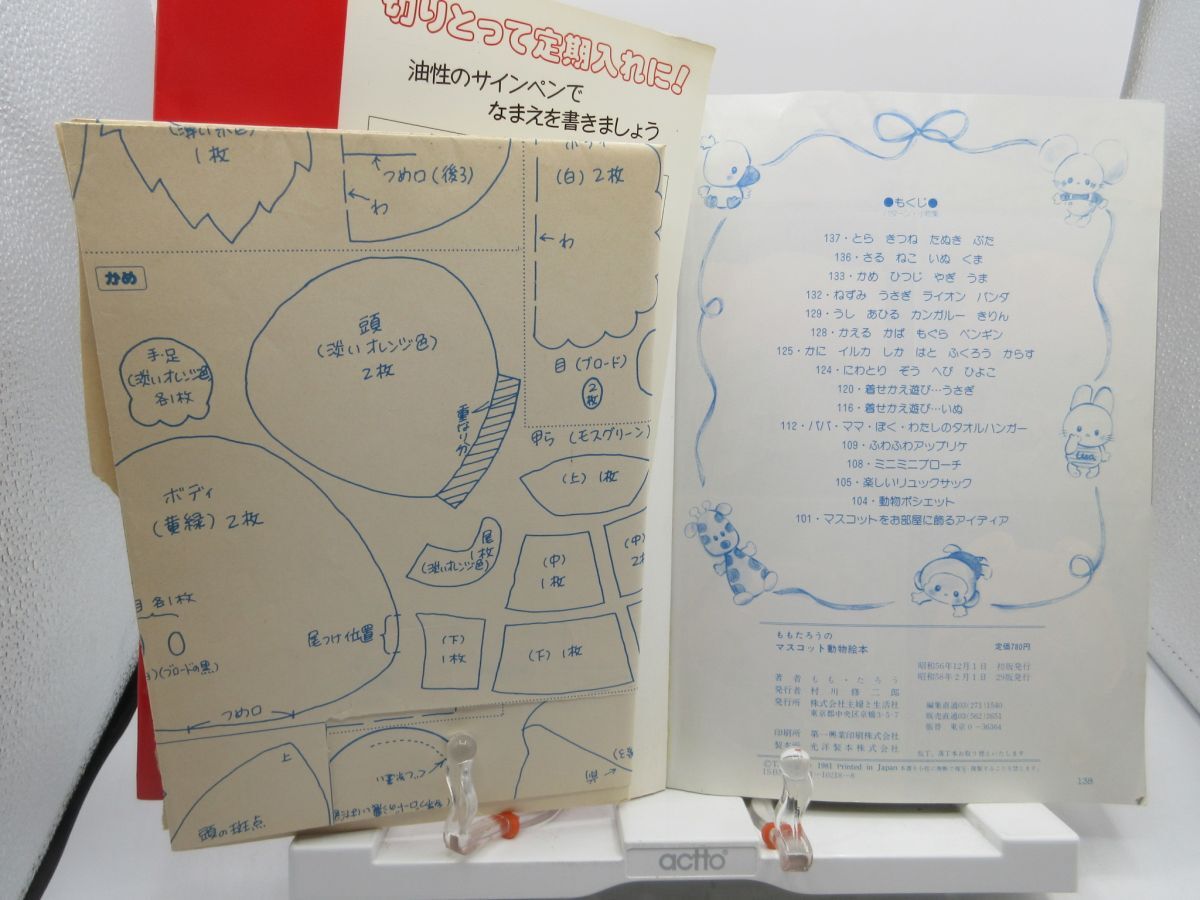 切りとって定期入れに!
油性のサインペンで
なまえを書きましょう
1枚
つめ口(後3)
わ
(白)2枚
わ
かめ
頭
(淡いオレンジ色)
2枚
手・足
(淡いオレンジ色)
各1枚
重なり分
目(ブロード)
2枚
甲ら(モスグリーン)
(上)1枚
ボディ
(黄緑)2枚
尾
1枚
(淡いオレンジ色)
(中)
1枚
(中)
2枚
目 各1枚
(ブロードの黒)
尾つけ位置
(下)
1枚
(下)1枚
つめ口
上
頭の斑点
●もくじ●
137・とら きつね たぬき ぶた
136・さる ねこ いぬ くま
133・かめ ひつじ やぎ うま
132・ねずみ うさぎ ライオン パンダ
129・うし あひる カンガルー きりん
128・かえる かば もぐら ペンギン
125・かに イルカ しか はと ふくろう からす
124・にわとり ぞう へび ひよこ
120・着せかえ遊び…うさぎ
116・着せかえ遊び…いぬ
112・パパ・ママ・ぼく・わたしのタオルハンガー
109・ふわふわアップリケ
108・ミニミニブローチ
105・楽しいリュックサック
104・動物ポシェット
101・マスコットをお部屋に飾るアイディア
ももたろうの
マスコット動物絵本
定価780円
昭和56年12月1日 初版発行
昭和58年2月1日 29版発行
著者 もも・たろう
発行者 村川修二郎
発行所 株式会社主婦と生活社
東京都中央区京橋3-5-7
編集直通03(271)1540
販売直通03(562)2651
振替 東京0-36364
印刷所 第一興業印刷株式会社
製本所 光洋製本株式会社
落丁、乱丁本お取り替えいたします。
1981 Printed in Japan
138
actto